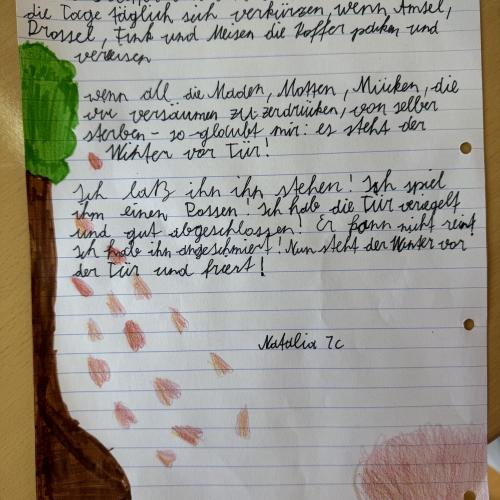 die Tage täglich sich verkürzen, wenn Amsel,
Drossel, Fink und Meisen die Koffer packen und
verreisen
wenn all die Maden, Motten, Mücken, die
wir versäumen zu zerdrücken, von selber
sterben - so glaubt mir: es steht der
Winter vor Tür!
Ich laß ihn ihn stehen! Ich spiel
ihm einen Possen! Ich hab die Tür veriegelt
und gut abgeschlossen! Er kann nicht rein!
Ich hab ihn angeschmiert! Nun steht der Winter vor
der Tür und friert!
Natalia 7c